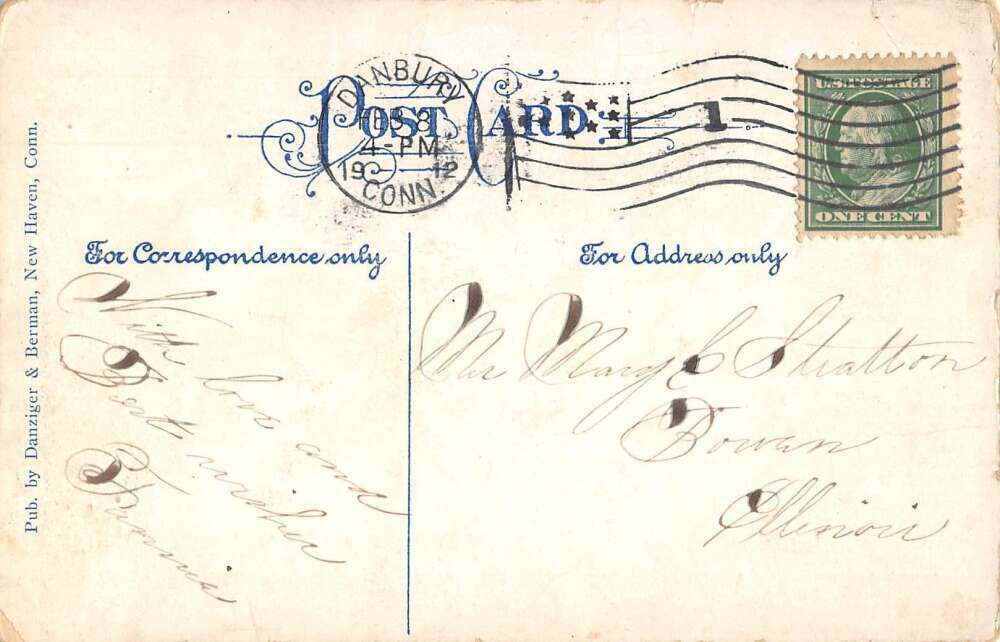 POST CARD
DANBURY
FEB 8
4-PM
1912
CONN.
1
U.S. POSTAGE
ONE CENT
For Correspondence only
For Address only
Pub. by Danziger & Berman, New Haven, Conn.
With love and
Best wishes
Fannie
Mrs Mary E Stratton
Bowen
Illinois